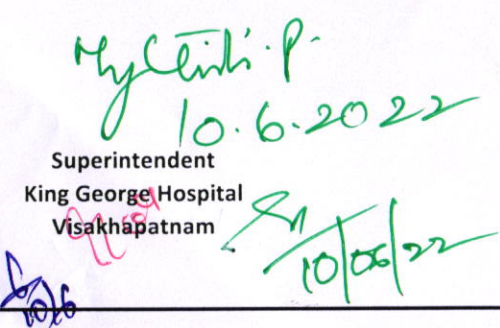 10.6.2022
Superintendent
King George Hospital
Visakhapatnam
10/06/22
10/6